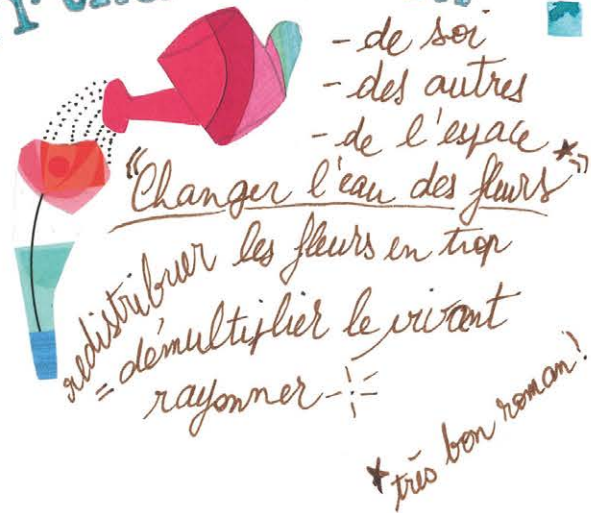 - de soi
- des autres
- de l'espace
"Changer l'eau des fleurs*"
redistribuer les fleurs en trop
= démultiplier le vivant
rayonner
* très bon roman!